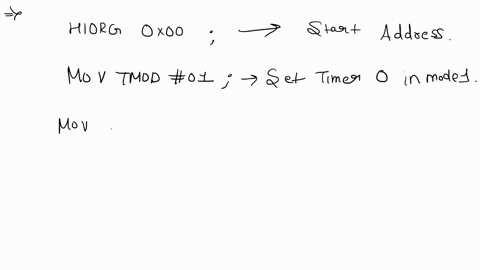 ⇒ HIORG 0x00 ; → Start Address.
MOV TMOD #01 ; → Set Timer 0 in mode1.
MOV